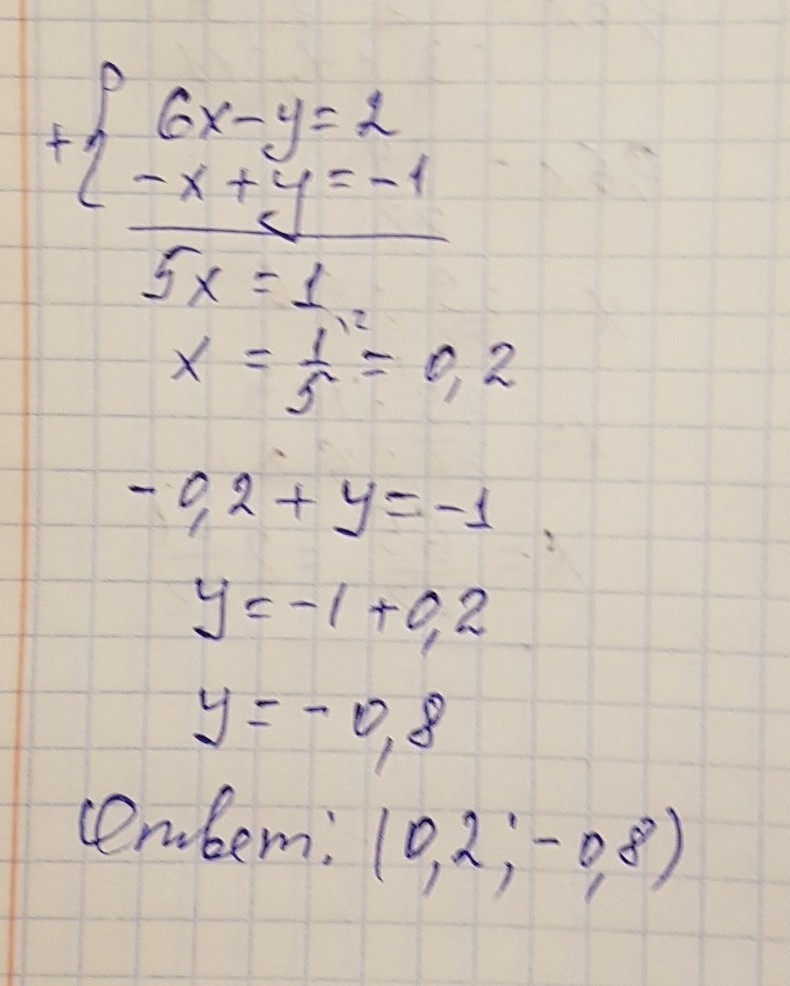 +{ 6x - y = 2
-x + y = -1
5x = 1
x = 1/5 = 0,2
-0,2 + y = -1
y = -1 + 0,2
y = -0,8
Ответ: (0,2; -0,8)